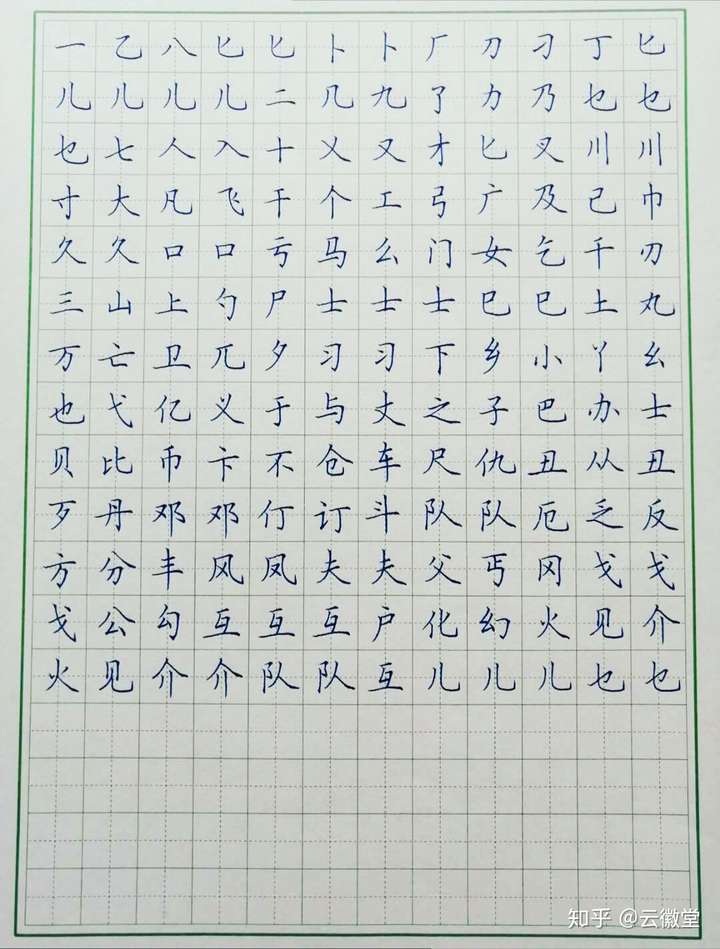 一乙八匕匕卜卜厂刀刁丁匕
儿儿儿儿二几九了力乃乜乜
乜七人入十乂又才匕叉川川
寸大凡飞干个工弓广及己巾
久久口口亏马么门女乞千刃
三山上勺尸士士士巳巳土丸
万亡卫兀夕习习下乡小丫幺
也弋亿义于与丈之子巴办士
贝比币卞不仓车尺仇丑从丑
歹丹邓邓仃订斗队队厄乏反
方分丰风凤夫夫父丐冈戈戈
戈公勾互互互户化幻火见介
火见介介队队互儿儿儿乜乜
知乎 @云徽堂